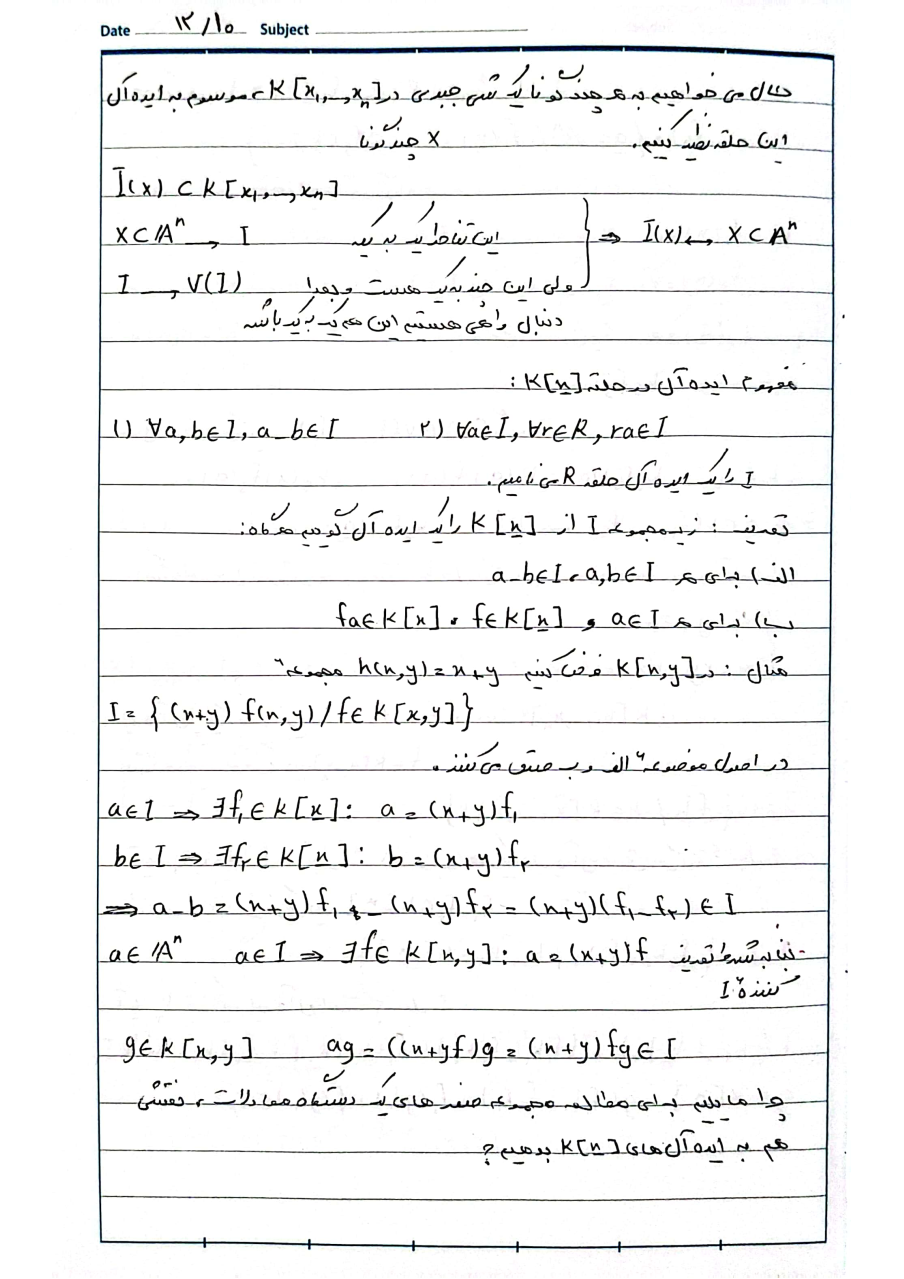 Date ۱۲/۱۰ Subject
حال می خواهیم به هر چندگونا یک شی جبری در K[x₁,...,xₙ]، موسوم به ایده آل
این حلقه نظیر کنیم. X چندگونا
I(x) ⊂ K[x₁,...,xₙ]
X⊂Aⁿ → I این تناظر یک به یک } ⇒ I(x) ↔ X⊂Aⁿ
I → V(I) ولی این چند به یک هست و بعدا
دنبال راهی هستیم این هم یک به یک باشه
مفهوم ایده آل در حلقه K[x]:
۱) ∀a,b∈I, a-b∈I ۲) ∀a∈I, ∀r∈R, ra∈I
I را یک ایده آل حلقه R می نامیم.
تعریف: زیرمجموعه I از K[x] را یک ایده آل گوییم هرگاه:
الف) برای هر a,b∈I، a-b∈I
ب) برای هر a∈I و f∈K[x]، fa∈K[x]
مثال: در K[x,y] فرض کنیم h(x,y)=x+y مجموعهٔ
I = {(x+y) f(x,y) / f∈K[x,y]}
در اصول موضوعهٔ الف و ب صدق می کنند.
a∈I ⇒ ∃f₁∈K[x]: a=(x+y)f₁
b∈I ⇒ ∃f₂∈K[x]: b=(x+y)f₂
⇒ a-b=(x+y)f₁ - (x+y)f₂ = (x+y)(f₁-f₂)∈I
a∈Aⁿ a∈I ⇒ ∃f∈K[x,y]: a=(x+y)f بنا به شرط تعریف
کنندهٔ I
g∈K[x,y] ag=((x+yf)g=(x+y)fg∈I
چرا مایلیم برای مطالعه مجموعه صفرهای یک دستگاه معادلات، نقشی
هم به ایده آل های K[x] بدهیم؟